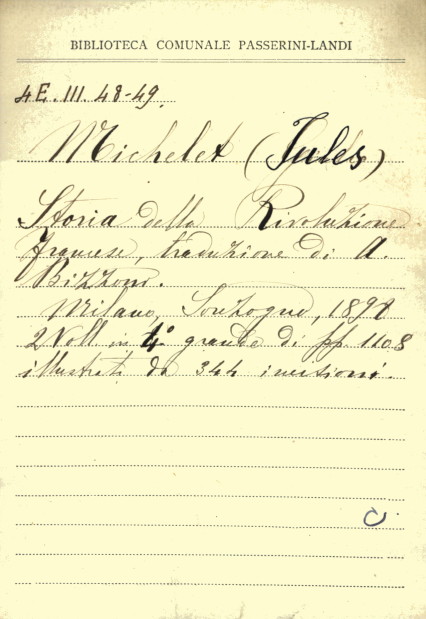 BIBLIOTECA COMUNALE PASSERINI-LANDI
4E. III. 48-49.
Michelet (Jules)
Storia della Rivoluzione
francese, traduzione di A.
Bizzoni.
Milano, Sonzogno, 1898
2 Voll in 4° grande di pp 1108
illustrati da 344 incisioni.
C